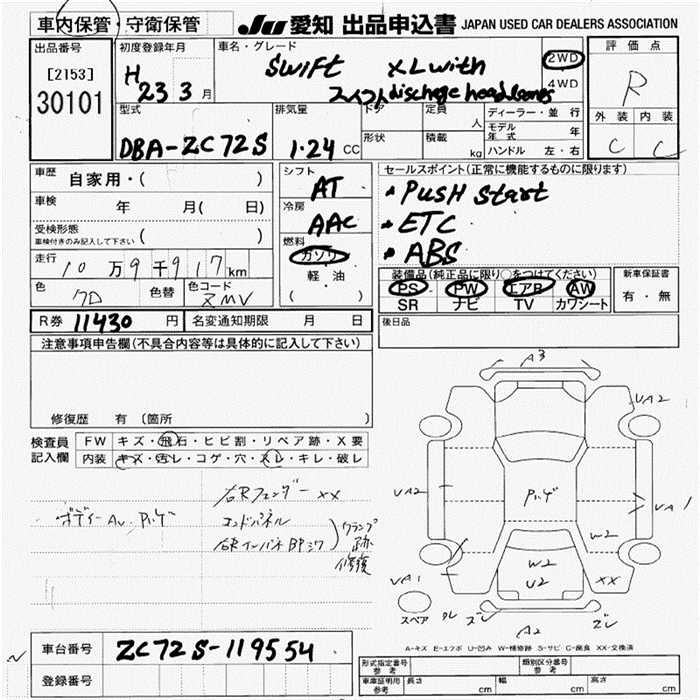 車内保管・守衛保管
JU 愛知 出品申込書 JAPAN USED CAR DEALERS ASSOCIATION
出品番号
[2153]
30101
初度登録年月
H 23 3 月
車名・グレード
SWIFT XL with
スイフト discharge headlamps
2WD
4WD
評価点
R
外装 内装
C C
型式
DBA-ZC72S
排気量
1.24 CC
ドア
形状
定員 人
積載 kg
ディーラー・並行
モデル年式 年
ハンドル 左・右
車歴 自家用・( )
車検 年 月( 日)
受検形態
車検付きのみ記入して下さい ( )
走行 10万9千917km
色
色替
色コード
ZMV
シフト
AT
冷房
AAC
燃料
ガソリン
軽・油
( )
セールスポイント(正常に機能するものに限ります)
・PUSH Start
・ETC
・ABS
装備品(純正品に限り○をつけてください)
PS PW エアB AW
SR ナビ TV カワシート
新車保証書
有・無
R券 11430 円
名変通知期限 月 日
後日品
注意事項申告欄(不具合内容等は具体的に記入して下さい)
修復歴 有 〔箇所 〕
検査員
記入欄
FW キズ・飛石・ヒビ割・リペア跡・X要
内装 キズ・汚レ・コゲ・穴・スレ・キレ・破レ
ボディー AU. PUゲ
右Rフェンダー XX
エンドパネル
右Rインパネ BPシワ
クランプ跡
修復
A3
UA2
UA2
PUゲ
UA1
W2
W2
U2
UA1
XX
スペア
ズレ
A2
ズレ
A-キズ E-エクボ U-凹み W-補修跡 S-サビ C-腐食 XX-交換済
車台番号 ZC72S-119554
登録番号
形式指定番号
参考
類別区分番号
参考
車庫証明用
参考
長さ cm
幅 cm
高さ cm